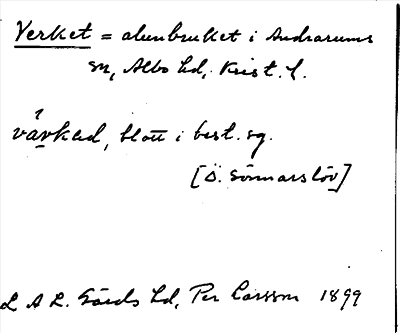 Verket = alunbruket i Andrarums
sn, Albo hd, Krist. l.
vạ̊rked, blott i best. sg.
[Ö. Sönnarslöv]
L A L. Gärds hd, Per Larsson 1899